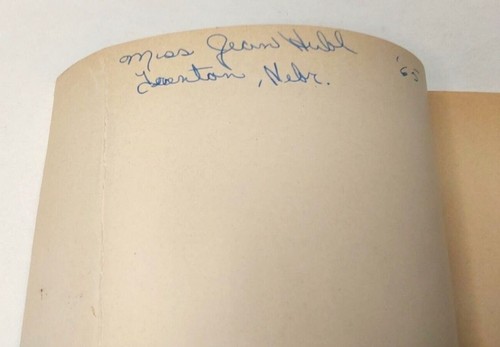 Miss Jean Hubl '65
Trenton, Nebr.